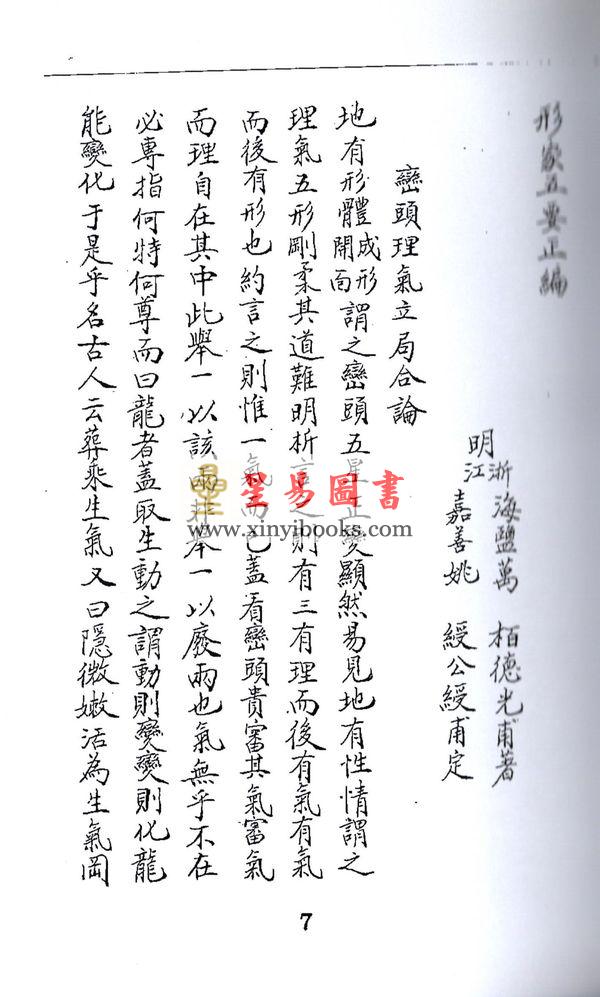 形家五要正編
明浙江 海鹽萬 栢德光甫著
嘉善姚 綬公綬甫定
巒頭理氣立局合論
地有形體成形開面謂之巒頭五星正變顯然易見地有性情謂之
理氣五形剛柔其道難明析言之則有三有理而後有氣有氣
而後有形也約言之則惟一氣而已蓋看巒頭貴審其氣審氣
而理自在其中此舉一以該兩非舉一以廢兩也氣無乎不在
必專指何特何尊而曰龍者蓋取生動之謂動則變變則化龍
能變化于是乎名古人云葬乘生氣又曰隱微嫩活為生氣岡
星易圖書
www.xinyibooks.com
7